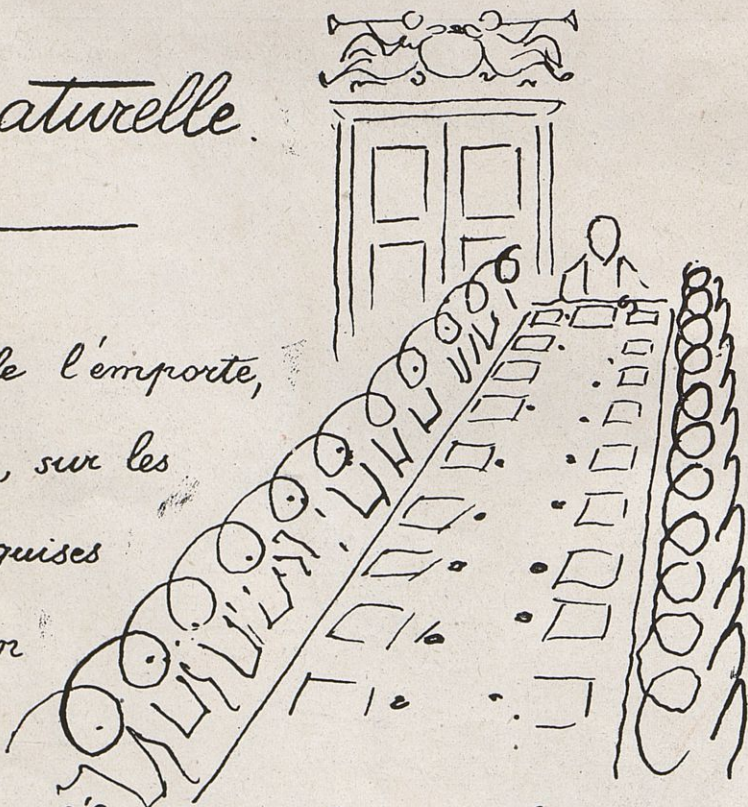 aturelle.
le l'emporte,
, sur les
quises